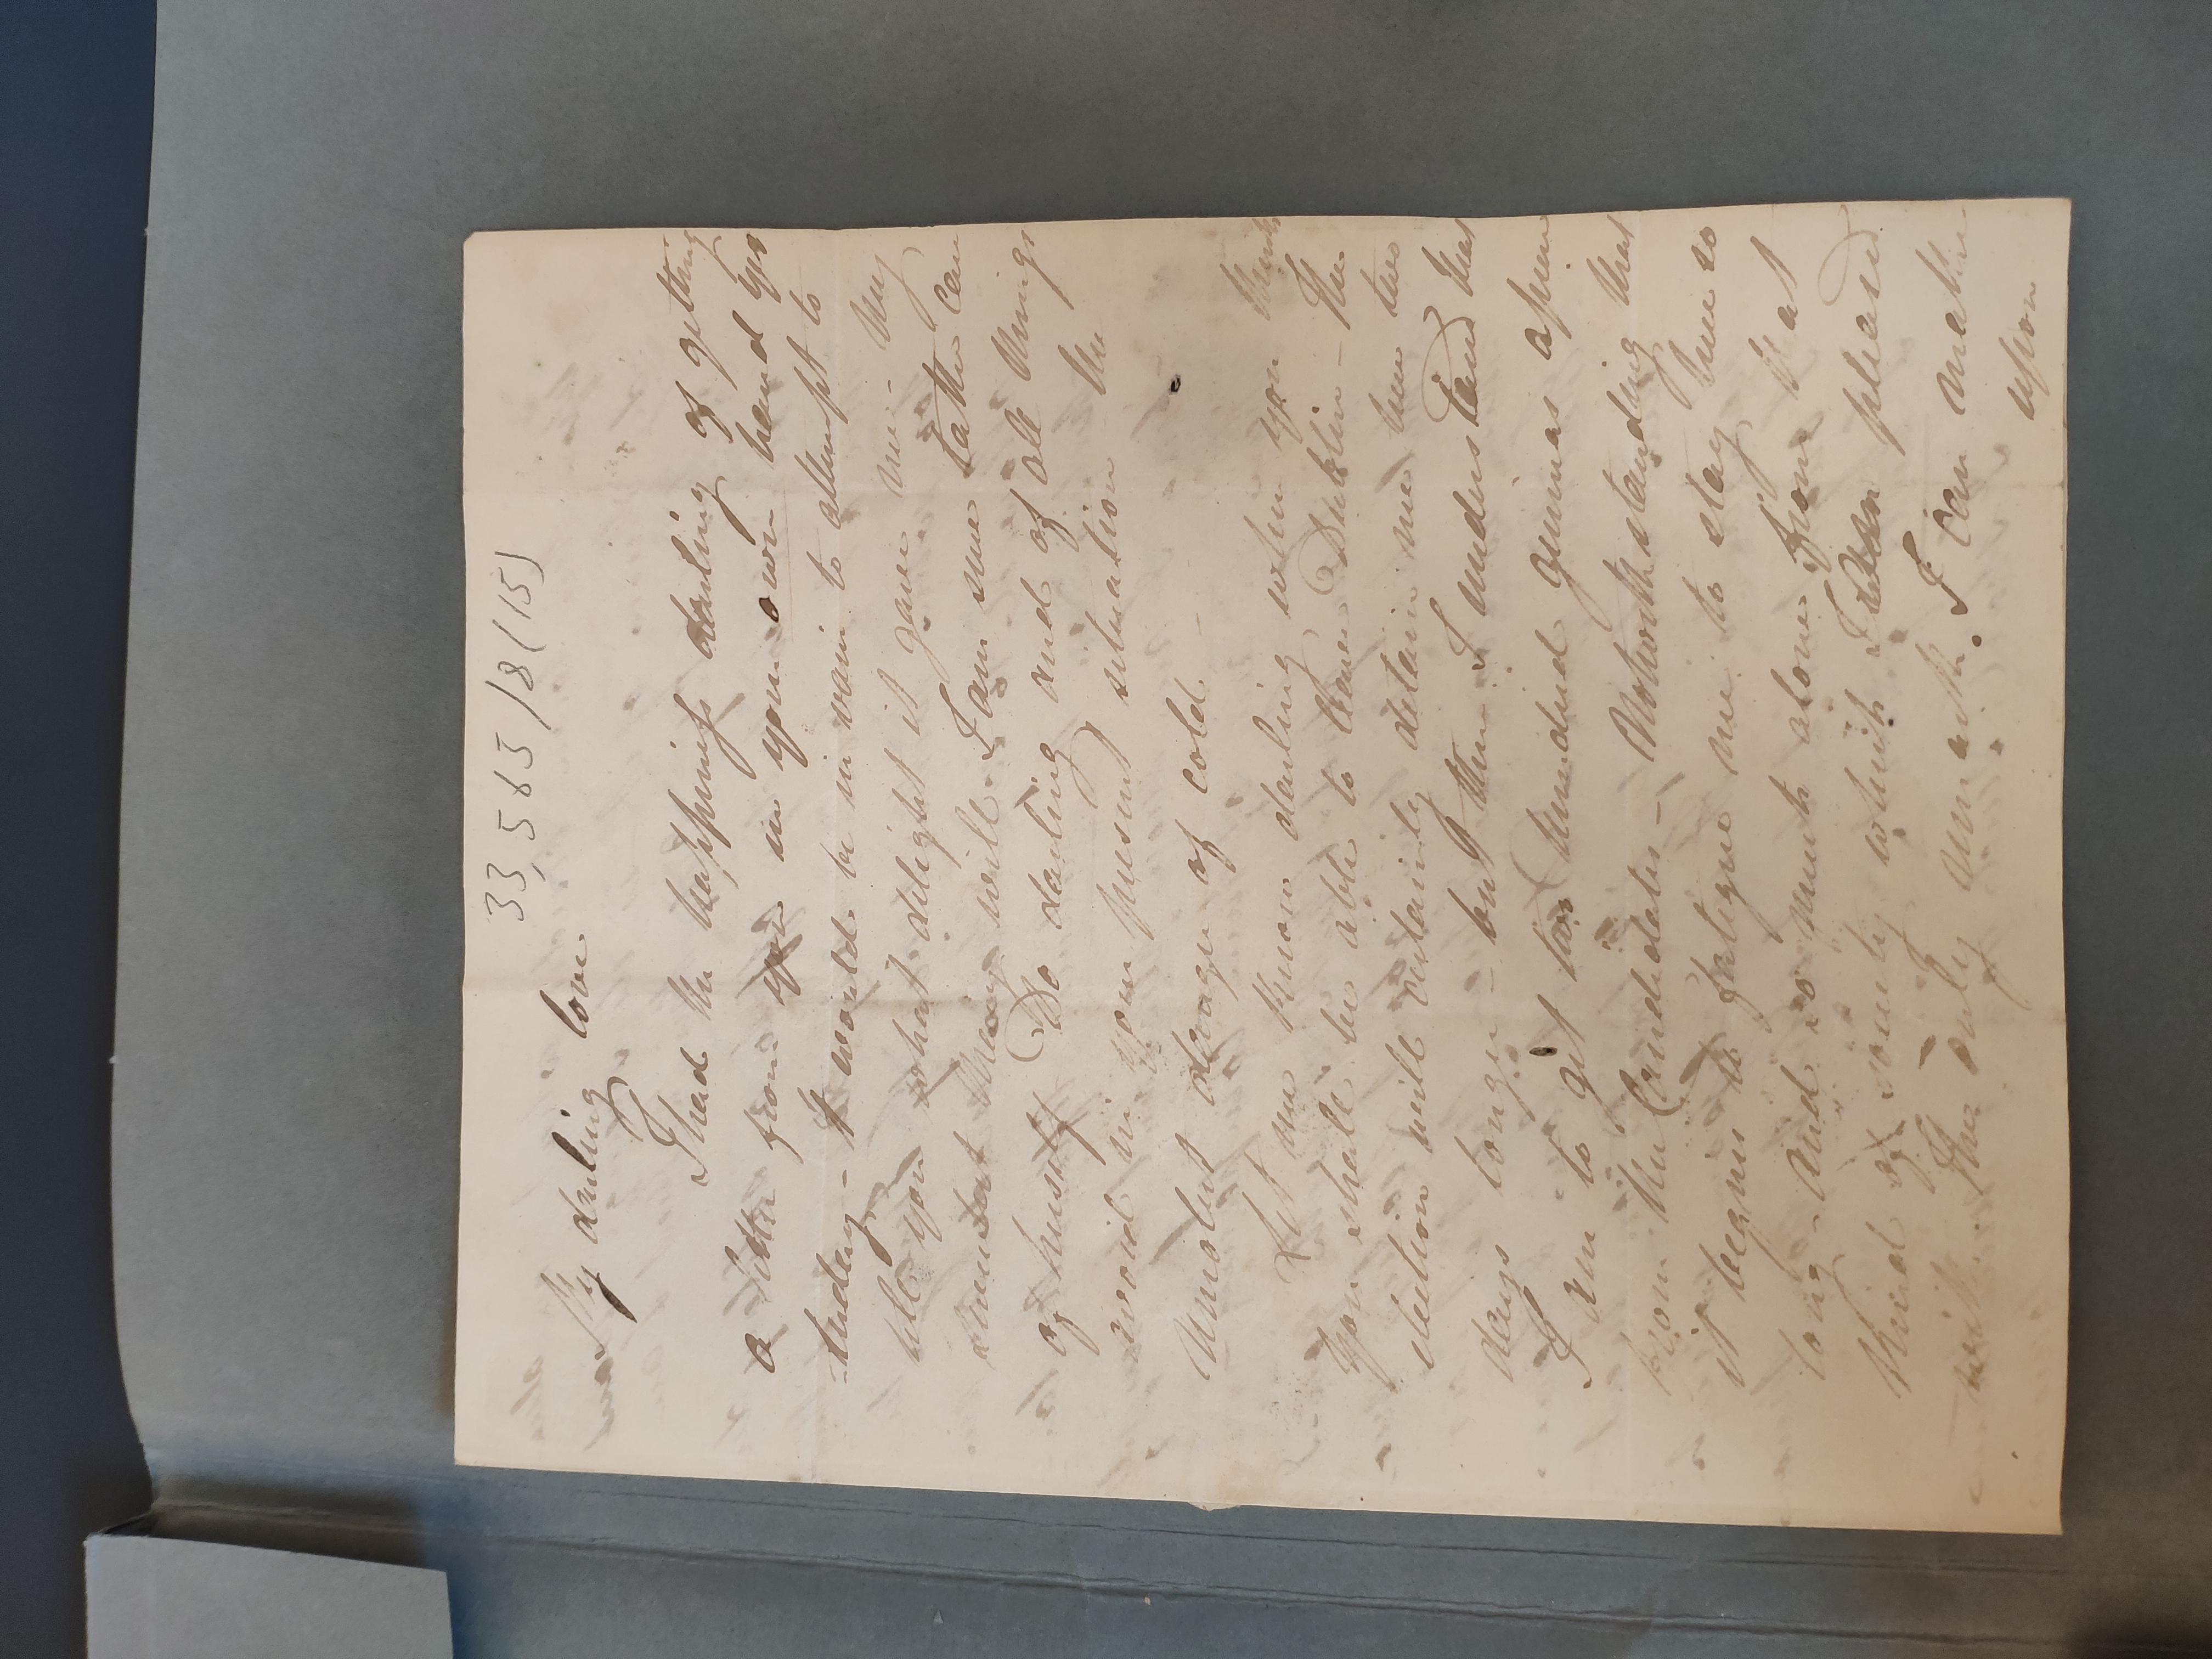 33,565/8(15)
My darling love
I had the happiness darling of getting
a letter from you in your own hand yes
terday - It would be in vain to attempt to
tell you what delight it gave me - My
dearest Mary will I am sure take care
of herself Do darling and of all things
avoid in your present situation the
smallest danger of cold -
Let me know darling when you think
you shall be able to leave Dublin - The
election will certainly detain me here two
days longer - but then I understand that
I am to get two hundred guineas apiece
from the Candidates - Notwithstanding that
it begins to fatigue me to stay here so
long - And so much alone from that
kind of society which I am pleased
with. The only remark I can make
upon